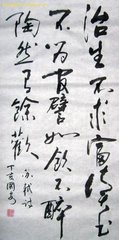 治生不求富讀書
不为官譬如飲不醉
陶然有餘歡 蘇軾詩
丁亥國